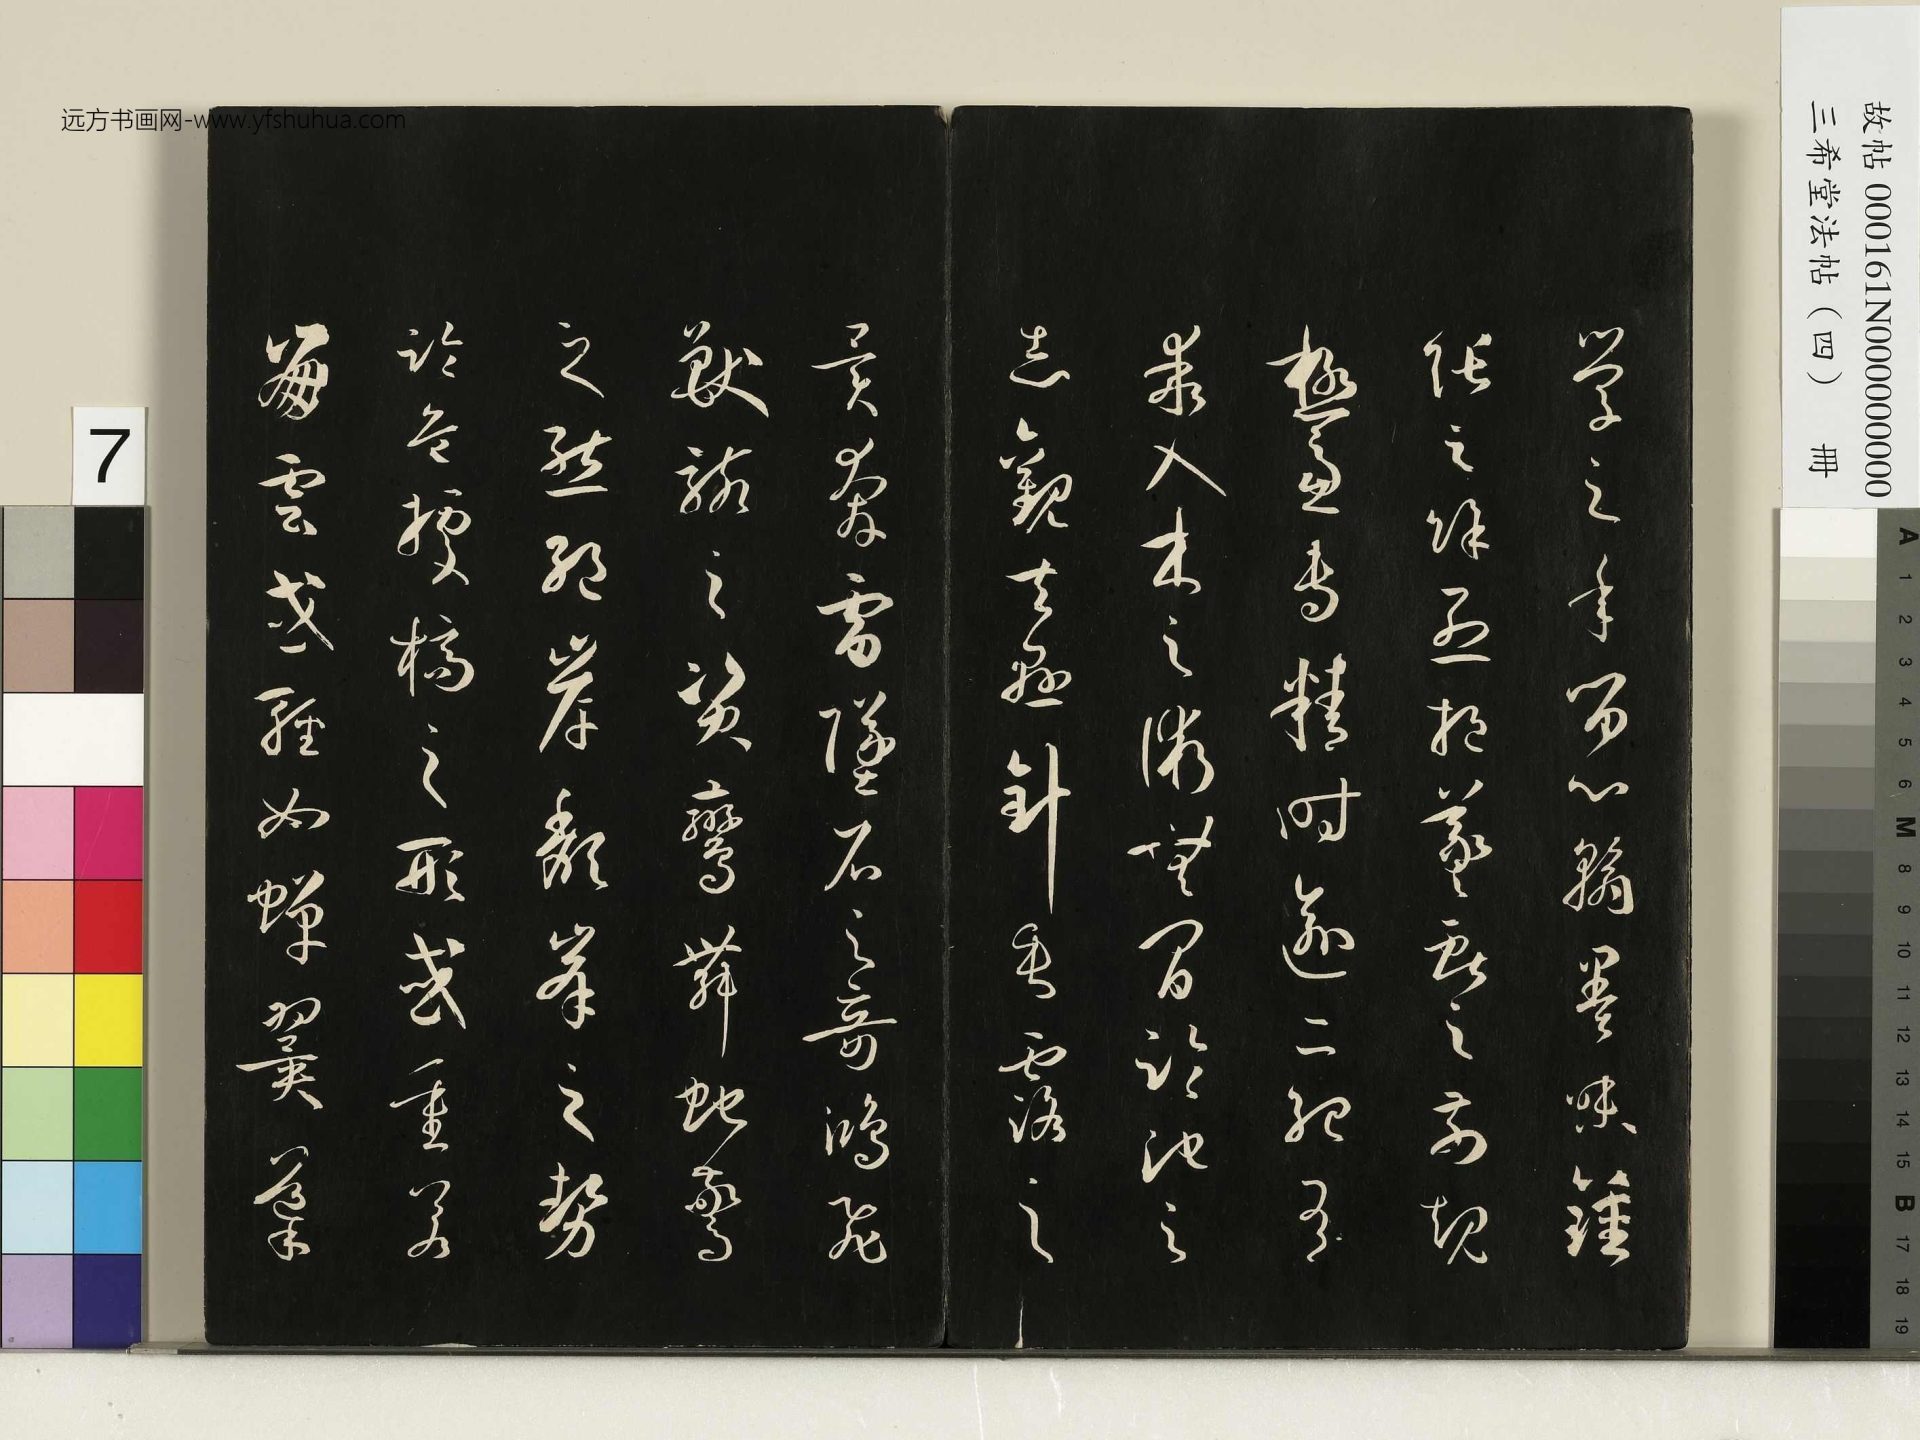 學之年留心翰墨味鍾
張之餘烈挹羲獻之前規
極慮專精時逾二紀有
乖入木之術無間臨池之
志觀夫懸針垂露之
異奔雷墜石之奇鴻飛
獸駭之資鸞舞蛇驚
之態絕岸頹峯之勢
臨危據槁之形或重若
崩雲或輕如蟬翼導
远方书画网-www.yfshuhua.com
故帖 000161N000000000
三希堂法帖（四） 冊
7
A
1
2
3
4
5
6
M
8
9
10
11
12
13
14
15
B
17
18
19